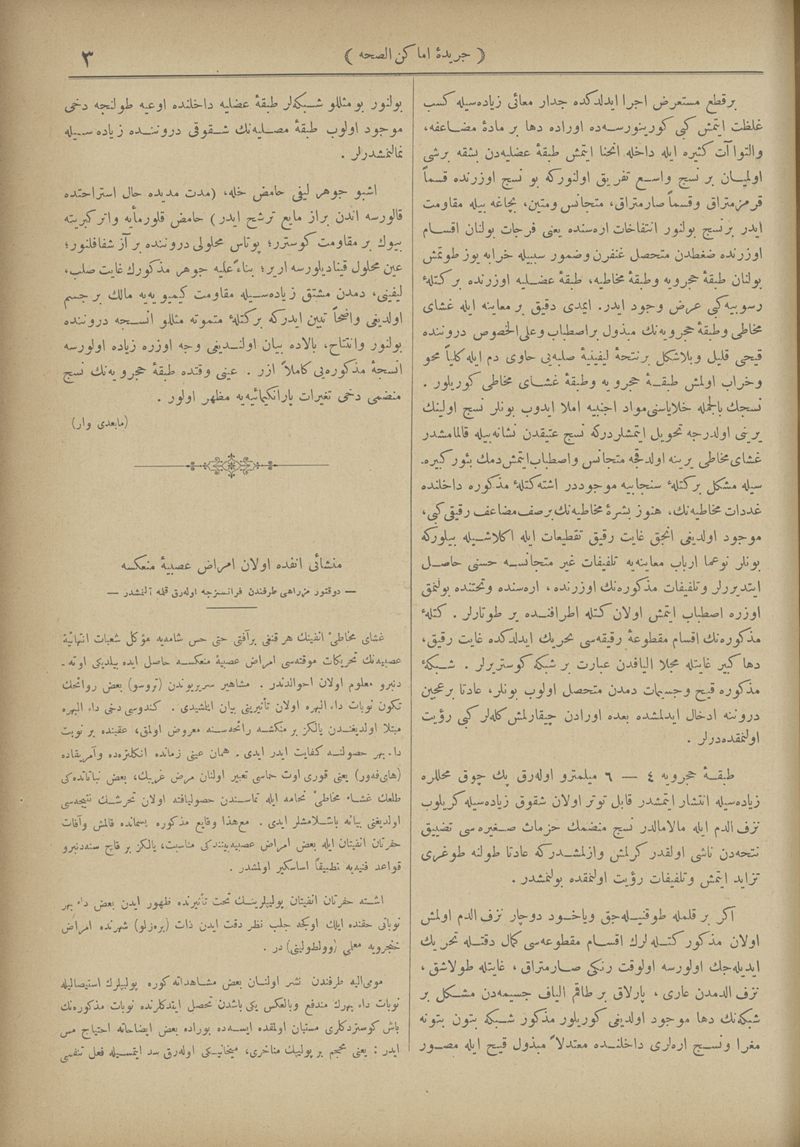 ( جريدۀ اماكن الصحه )
٣
برقطع مستعرض اجرا ايدلدكده جدار معائی زياده‌سيله كسب
غلظت ايتمش كبی كورينورسه‌ده اوراده دها بر مادۀ مضاعفه،
والتواآت كثيره ايله داخله انحنا ايتمش طبقۀ عضليه‌دن بشقه برشی
اولميان بر نسج واسع تفريق اولنوركه بو نسج اوزرنده قسماً
قرمزمتراق وقسماً صارمتراق، متجانس ومتين، بجاغه بيله مقاومت
ايدر برنسج بولنور انتفاخات اره‌سنده يعنی فرجات بولنان اقسام
اوزرنده ضغطدن متحصل غنغرن وضمور سببيله خرابه يوز طوتمش
بولنان طبقۀ حجرويه وطبقۀ مخاطيه، طبقۀ عضليه اوزرنده بركتلۀ
رسوبيه‌كبی عرض وجود ايدر. ايمدی دقيق بر معاينه ايله غشای
مخاطی وطبقۀ حجرويه‌نك مبذول براصطباب وعلی الخصوص دروننده
قيحی قليل وبلاشكل برنتحۀ ليفينيۀ صلبه‌یی حاوی دم ايله كلياً محو
وخراب اولمش طبقۀ حجرويه وطبقۀ غشای مخاطی كوريلور .
نسجك بالجمله خلاياسنی مواد اجنبيه املا ايدوب بونلر نسج اولينك
يرينی اولدرجه تحويل ايتمشلردركه نسج عتيقدن نشانه‌بيله قالمامشدر
غشای مخاطی يرينه اولدقجه متجانس واصطباب ايتمش دمك بثور كيره.
سيله مشكل بركتلۀ سنجابيه موجوددر اشته كتلۀ مذكوره داخلنده
غددات مخاطيه‌نك، هنوز بشرۀ مخاطيه‌نك برصف مضاعف رقيقی كبی،
موجود اولديغی انجق غايت رقيق تقطيعات ايله اكلاشيله بيلوركه
بونلر نوعما ارباب معاينه‌يه تلفيفات غير متجانسه حسنی حاصل
ايتديررلر وتلفيفات مذكوره‌نك اوزرنده ، اره‌سنده وتحتنده بولنمق
اوزره اصطباب ايتمش اولان كتله اطرافنده بر طوتارلر . كتلۀ
مذكوره‌نك اقسام مقطوعۀ رقيقه‌سی تحريك ايدلدكده غايت رقيق،
دها كبير غايتله مجلا اليافدن عبارت بر شبكه كوستريرلر . شبكۀ
مذكوره قيح وجسيمات دمدن متحصل اولوب بونلر، عادتا بر عجين
دروننه ادخال ايدلمشده بعده اورادن چيقارلمش كله‌لر كبی رؤيت
اولنمقده‌درلر .
طبقۀ حجرويه ٤ — ٦ ميلمترو اوله‌رق پك چوق محللره
زياده‌سيله انتشار ايتمشدر قابل توتر اولان شقوق زياده‌سيله كريلوب
نزف الدم ايله مالامالدر نسج منضمك حزمات صغيره‌سی تضييق
نتحه‌دن ناشی اولقدر كرلمش وازلمشدركه عادتا طولنه طوغری
تزايد ايتمش وتلفيفات رؤيت اولنمقده بولنمشدر .
اكر بر قلمله طوقنيله‌جق وياخود دوچار نزف الدم اولمش
اولان مذكور كتله‌لرك اقسام مقطوعه‌سی كمال دقتله تحريك
ايديله‌جك اولورسه اولوقت رنكی صارمتراق ، غايتله طولاشق ،
نزف الدمدن عاری ، پارلاق بر طاقم الياف جسيمه‌دن مشكل بر
شبكه‌نك دها موجود اولديغی كوريلور مذكور شبكه بتون بتونه
مغرا ونسج اره‌لری داخلنده معتدلاً مبذول قيح ايله مصور
بولنور بو مثللو شبكه‌لر طبقۀ عضليه داخلنده اوعيه طولنجه دخی
موجود اولوب طبقۀ مصليه‌نك شقوقی دروننده زياده‌سيله
نمالنمشدرلر .
اشبو جوهر ليفی حامض خله، (مدت مديده حال استراحتده
قالورسه اندن براز مايع ترشح ايدر) حامض قلورمأيه واتر كبريته
بيوك بر مقاومت كوسترر؛ پوتاس محلولی دروننده بر آز شفافلنور؛
عين محلول قيناديلورسه ارير؛ بناءً عليه جوهر مذكورك غايت صلب،
ليفينی، دمدن مشتق زياده‌سيله مقاومت كيميويه‌يه مالك بر جسم
اولديغی واضحاً تبين ايدركه بركتلۀ متموته مثللو انسجه دروننده
بولنور وانتتاج، بالاده بيان اولنديغی وجه اوزره زياده اولورسه
انسجۀ مذكوره‌یی كاملاً ازر . عينی وقتده طبقۀ حجرويه‌نك نسج
منضمی دخی تغيرات پارانكيمائيه‌يه مظهر اولور .
(مابعدی وار)
منشائی انفده اولان امراض عصبيۀ منعكسه
— دوقتور مزراهی طرفندن فرانسزجه اوله‌رق قلمه آلنمشدر —
غشای مخاطئ انفينك هر قنغی برآفتی حتی حس شامه‌يه مؤكل شعبات انتهائيۀ
عصبيه‌نك تحريكات موقته‌سی امراض عصبيۀ منعكسه حاصل ايده بيلديكی اوته ـ
دنبرو معلوم اولان احوالدندر . مشاهير سريريوندن (تروسو) بعض روائحك
تكون نوبات داء البهره اولان تأثيرينی بيان ايلمشيدی . كندوسی دخی داء البهره
مبتلا اولديغندن يالكز بر منكشه رائحه‌سنه معروض اولمق، عقبنده بر نوبت
داء بهر حصولنه كفايت ايدر ايدی . همان عينی زمانده انكلتره‌ده وآمريقاده
(های‌فه‌ور) يعنی قوری اوت حماسی تعبير اولنان مرض غريبك، بعض نباتاتده‌كی
طلعك غشاء مخاطئ نخامه ايله تماسندن حصوليافته اولان تحرشك نتيجه‌سی
اولديغنی بيانه باشلامشلر ايدی . مع‌هذا وقايع مذكوره بسمانده قالمش وآفات
حفرتان انفيتان ايله بعض امراض عصبيه‌بيننده‌كی مناسبت، يالكز بر قاچ سنه‌دنبرو
قواعد فنيه‌يه تطبيقاً اساسكير اولمشدر .
اشته حفرتان انفيتان پوليپلرينك تحت تأثيرنده ظهور ايدن بعض داء بهر
نوباتی حقنده ايلك اوكجه جلب نظر دقت ايدن ذات (بره‌زلو) شهرنده امراض
خنجرويه معلمی (وولطولينی) در .
مومی‌اليه طرفندن نشر اولنان بعض مشاهداته كوره پوليپلرك استيصاليله
نوبات داء بهرك مندفع وبالعكس يكی باشدن تحصل ايتدكلرنده نوبات مذكوره‌نك
باش كوستردكلری مستبان اولمقده ايسه‌ده بوراده بعض ايضاحاته احتياج مس
ايدر : يعنی محجم بر پوليپك مناخری، ميخانيكی اوله‌رق سد ايتمسيله فعل تنفسی